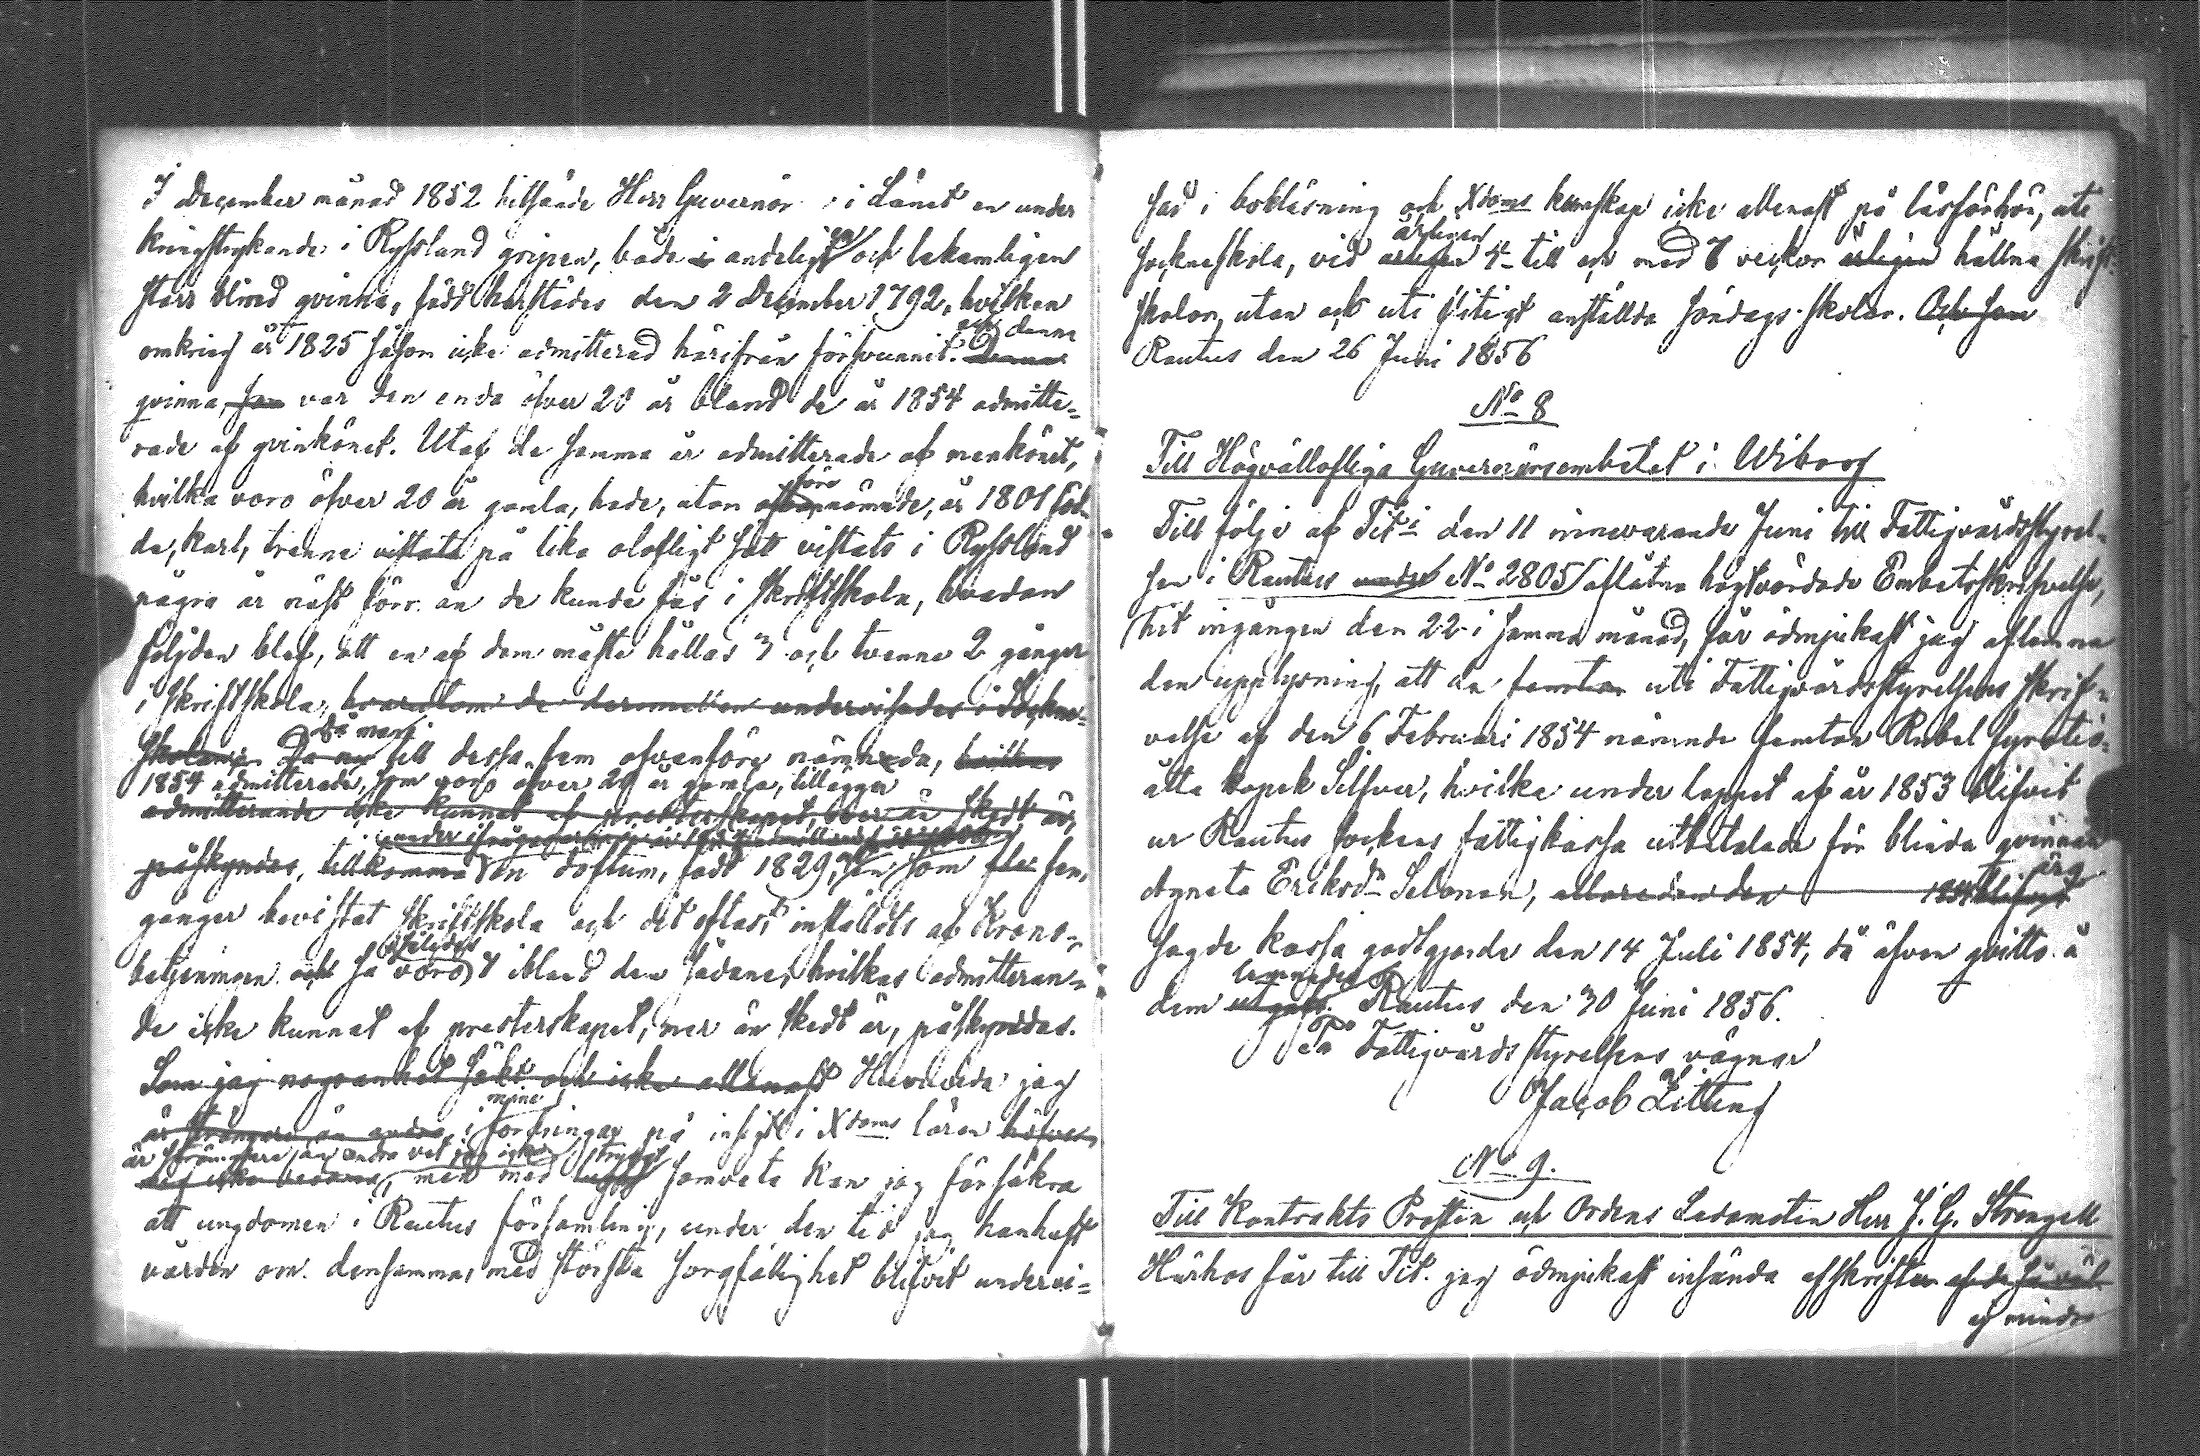 I December månad 1852 hitsände Herr Guvernör i Länet en under
kringstrykande i Ryssland gripen, både i andeligt en och lekamligen
starr blind qvinna, född härstädes den 2 December 1792, hvilken
omkring år 1825 såsom icke admitterad härifrån försvunnit. och denne Denna
qvinna, som var den enda öfver 20 år bland de år 1854 admitte-
rade af qvinkönet. Utaf de samma år admitterade af mankönet,
hvilka voro öfver 20 år gamla, hade, utom ofvan före nämnde, år 1801 föd-
da, karl, trenne vistats på lika olofligt sätt vistats i Ryssland
några år näst förr än de kunde fås i Skriftskola, hvadan
följden blef, att en af dem måste hållas 3 och tvenne 2 gånger
i Skriftskola, hvarutom de deremellan undervisades i Sockne-
skolan. Då nu Då man till dessa fem ofvanföre nämnda, hvilkas
1854 admitterade, som voro öfver 20 år gamla, tillägger
admitterande icke kunnat af presterskapet, mer än skedt är,
påskyndas, tillkomma en dostum, född 1829, som flere sen,
gånger bevistat Skriftskola och dit oftast inställdts af Krono-
betjeningen och så voro följde 7 ibland den sådane, hvilkas admitteran-
de icke kunnat af presterskapet, mer än skedt är, påskyndas.
Som jag nogsamhet sökt och icke allenast Huruvida jag
är strängare än andra, i mine fordringar på insigt i Xdoms läran
är strängare än andra vet jag icke tryggt
men med samvete kan jag försäkra
att ungdomen i Rautus församling, under den tid jag hanhaft
vården om densamma, med största sorgfällighet blifvit undervi-
sad i bokläsning och Xdoms kunskap icke allenast på läsförhör, uti
sockneskola, vid årligen årligen 4 till och med 7 veckor årligen hållna Skrift-
skolor, utan och uti flitigt anställda söndags-skolor. Och som
Rautus den 26 Juni 1856
No 8
Till Högvällofliga Guvernörsembetet i Wiborg
Till följe af Tit:s den 11 innevarande Juni till Fattigvårdsstyrel-
sen i Rautus under No 2805 aflåtna högtvördade Embetsskrifvelse,
hit ingången den 22 i samma månad, får ödmjukast jag aflemna
den upplysning, att de femton uti Fattigvårdsstyrelsens skrif-
velse af den 6 Februari 1854 nämnde femton Rubel fyratio-
åtta kopek Silfver, hvilka under loppet af år 1853 blifvit
ur Rautus Sockens fattigkassa utbetalade för blinda qvinnan
Agneta Eriksdr Selonen, allaredan den 1854 blifvit
sagde kassa godtgjorde den 14 Juli 1854, då äfven qvitto å
dem utgafs lemnades. Rautus den 30 Juni 1856.
På Fattigvårdsstyrelsens vägnar
Jacob Litting
No 9.
Till Kontrakts Prosten och Ordens Ledamoten Herr J. G. Strengell
Härhos får till Tit. jag ödmjukast insända afskrifter af de såväl
ej mindre